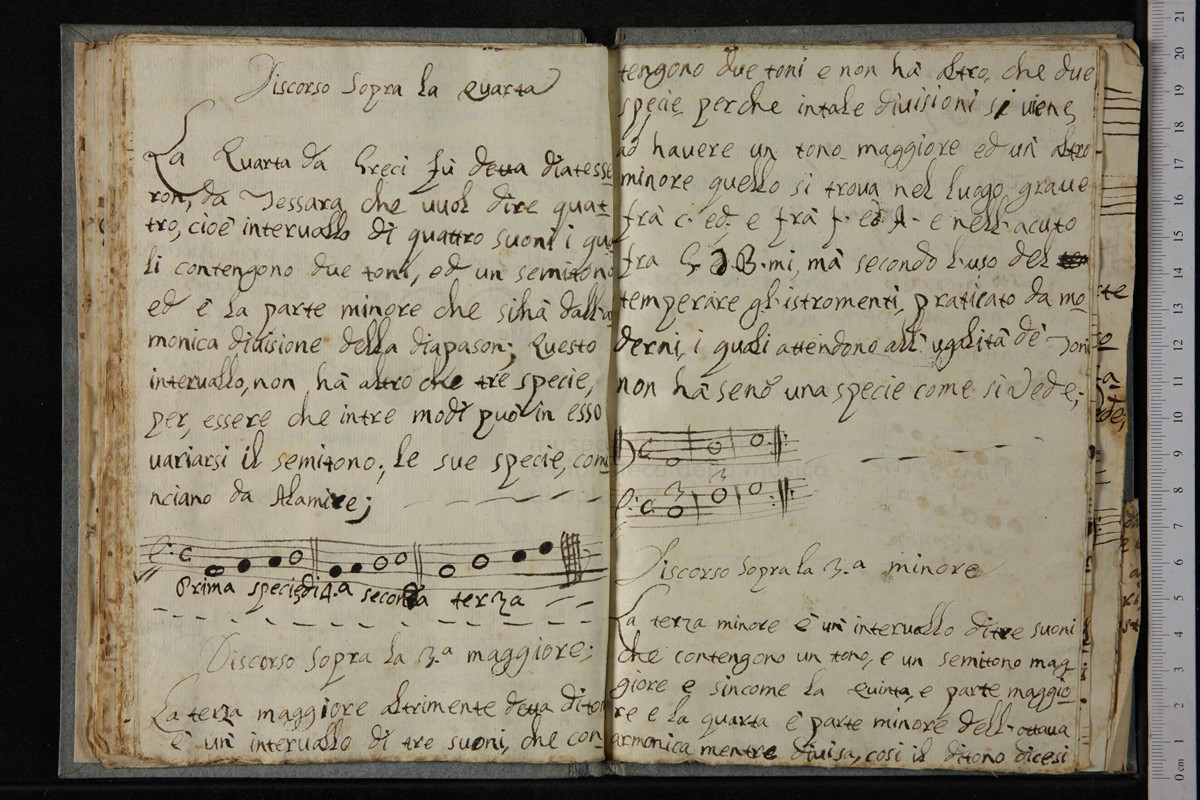 Discorso sopra la Quarta
La Quarta da Greci fù detta diatesse
ron, da Tessara, che vuol dire quat-
tro, cioè intervallo di quattro suoni i qua
li contengono due toni, ed un semitono
ed è la parte minore che si hà dall'a
monica divisione della diapason; Questo
intervallo, non hà altro che tré specie,
per, essere che in tre modi può in esso
variarsi il semitono; le sue specie, com
nciano da Alamire;
Prima specie di 4.a seconda terza
Discorso sopra la 3.a maggiore;
La terza maggiore altrimente detta diton
è un' intervallo di tre suoni, che con-
tengono due toni e non hà altro, che due
specie, perche in tale divisioni si viene
ad havere un tono maggiore ed un' altro
minore quello si trova nel luogo grave
frà c. ed. e frà f. ed A. e nell'acuto
fra G. B.mi, mà secondo l'uso del
temperare gl'istromenti, praticato da mo
derni, i quali attendono all'ugalità de' Toni
non hà senõ una specie come si vede;
Discorso sopra la 3.a minore
La terza minore è un' intervallo di tre suoni
che contengono un tono, e un semitono mag
giore e sincome la Quinta, e parte maggio
re e la quarta è parte minore dell'ottava
armonica mentre divisa, cosi il ditono dicesi